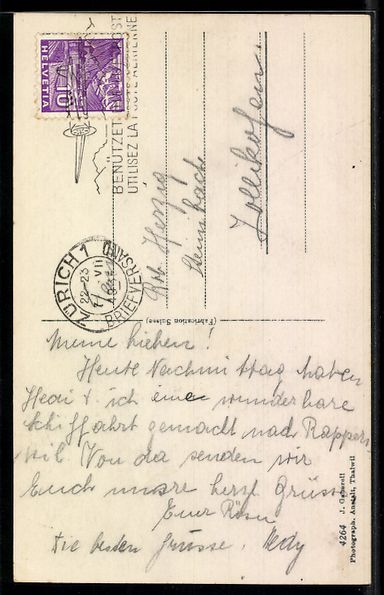 HELVETIA
10
BENÜTZET
UTILISEZ LA POSTE AÉRIENNE
ZÜRICH 1
22-23
VII
BRIEFVERSAND
Rob. Herzig
Steinbach
Zollikofen
(Fabrication Suisse)
Meine Lieben!
Heute Nachmittag haben
Hedi & ich eine wunderbare
Schiffahrt gemacht nach Rappers
wil. Von da senden wir
Euch unsre herzl. Grüsse
Eure Rosa
Die besten Grüsse. Hedy
4264 J. Gaberell
Photograph. Anstalt, Thalwil